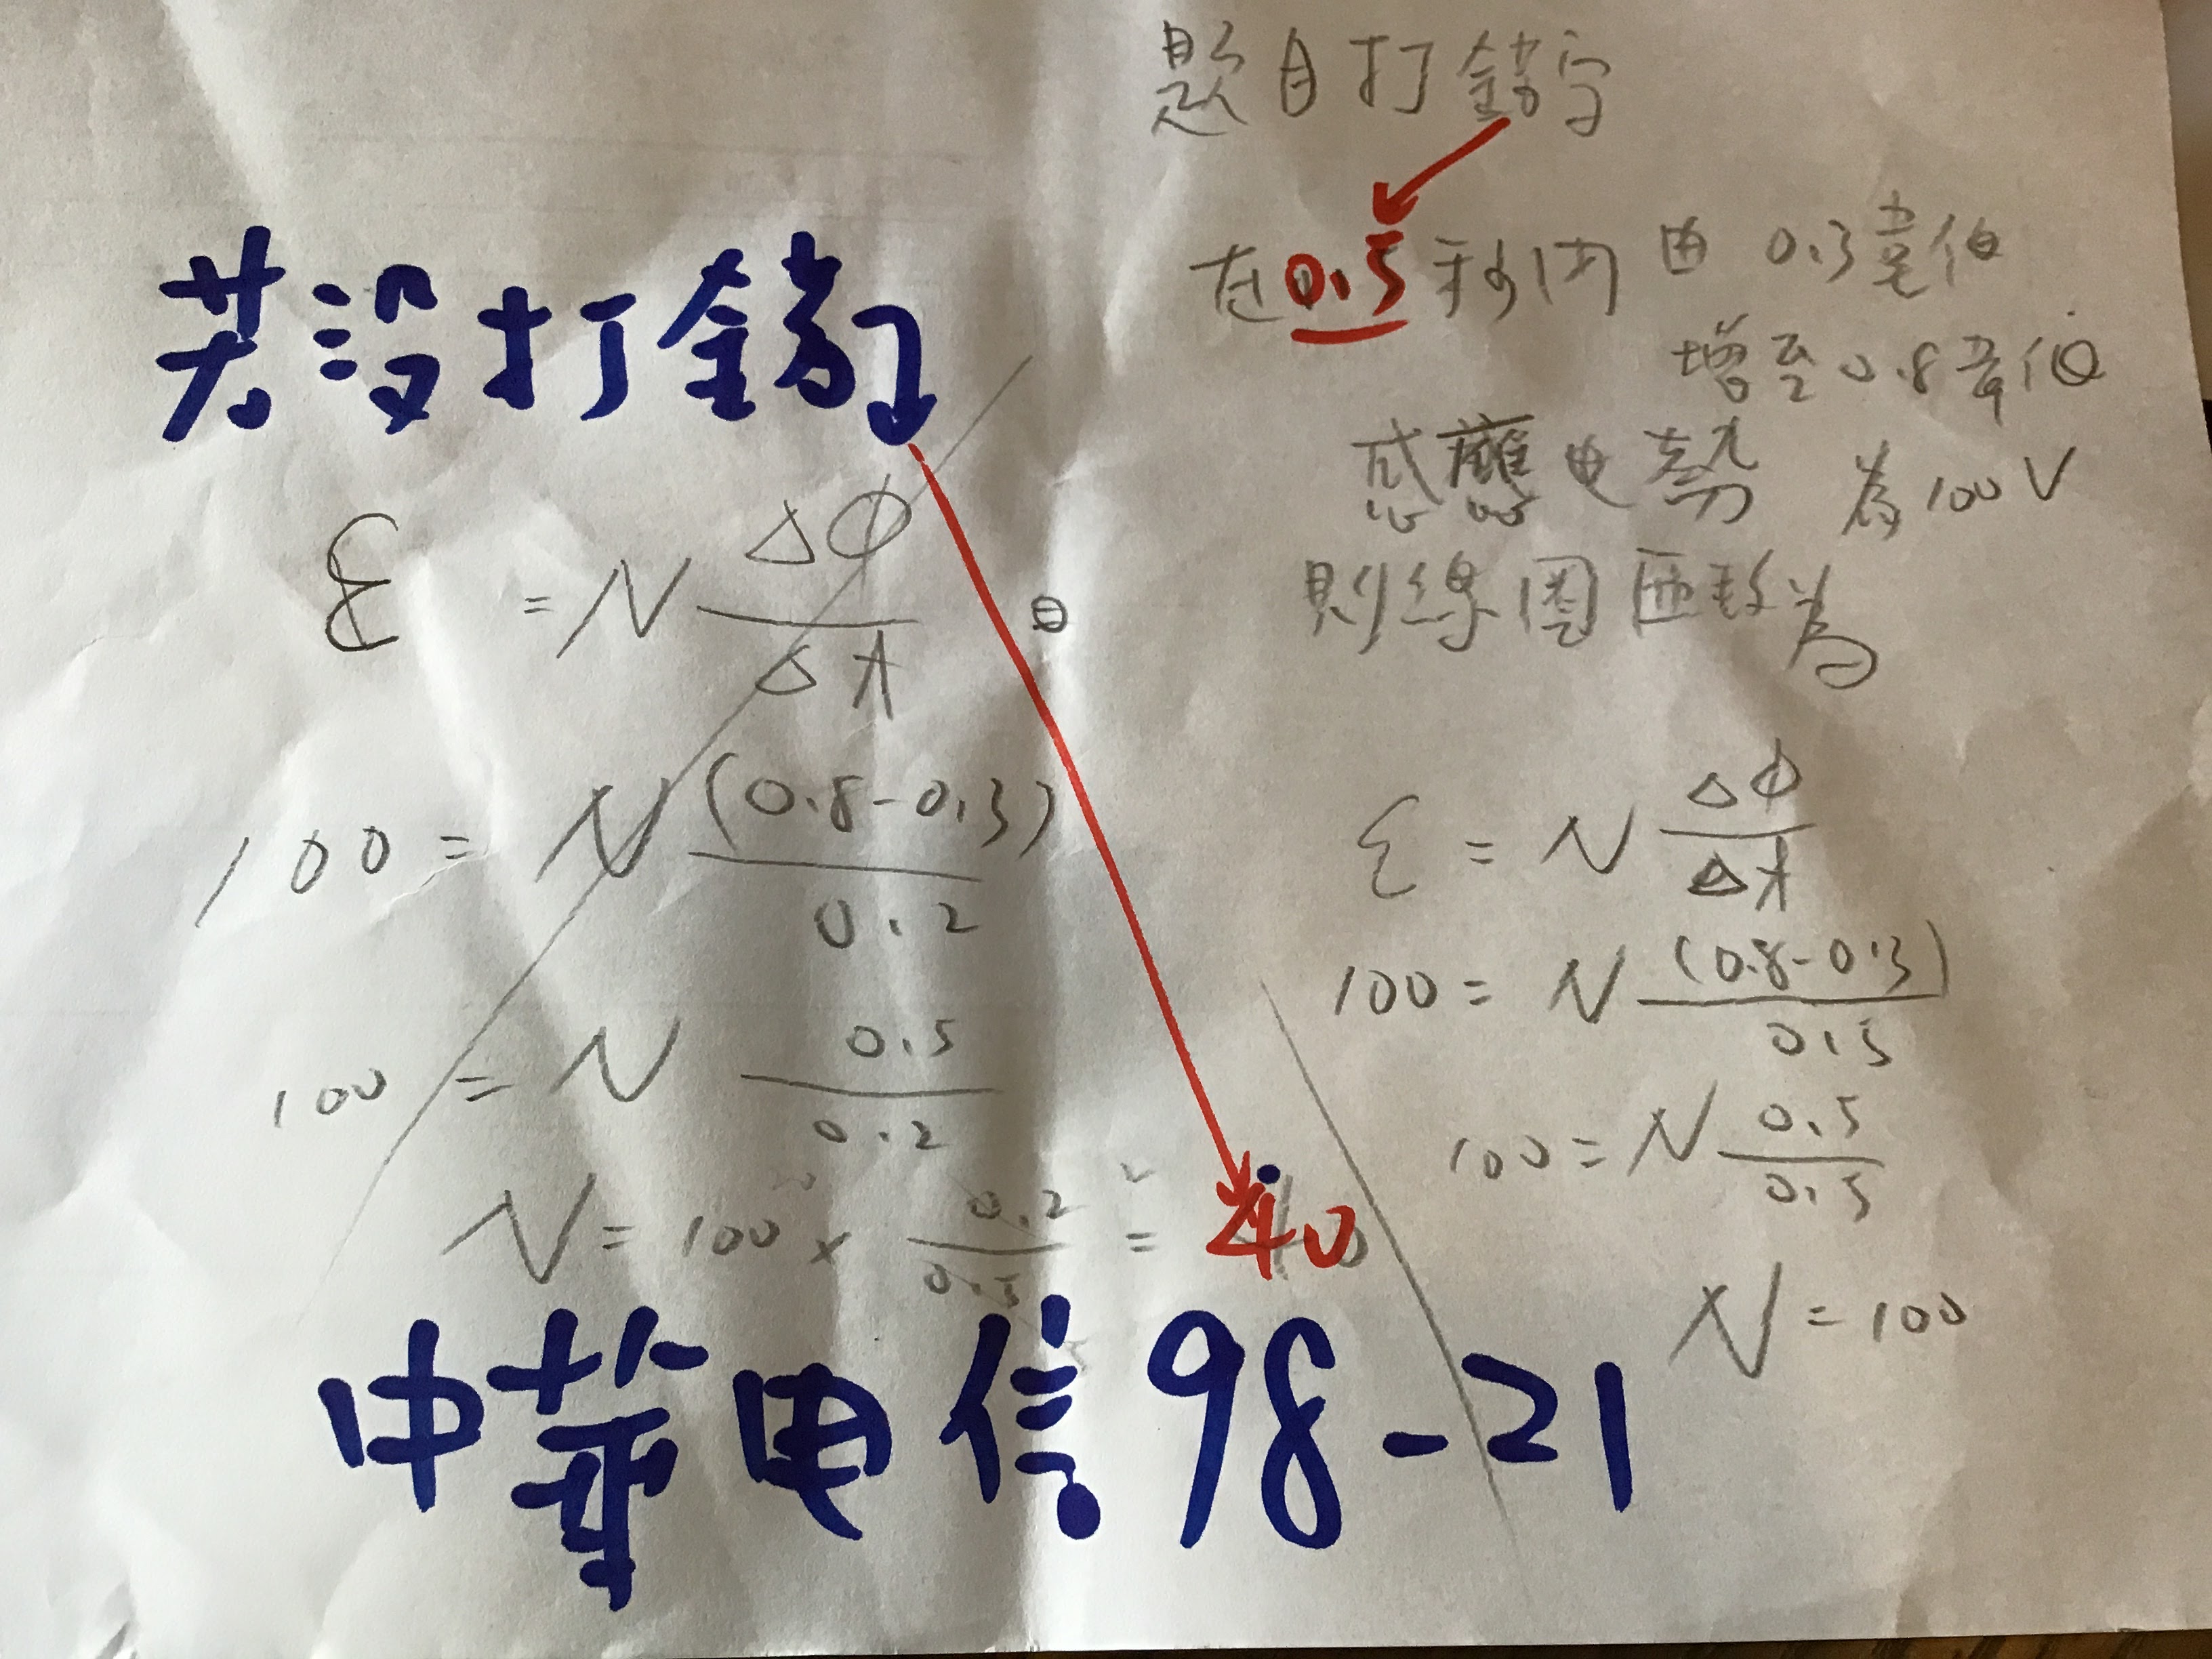 題目打錯字
在0.5秒內由0.3韋伯
增至0.8韋伯
感應电勢為100V
則線圈匝數為
若没打錯
ε = N ΔΦ / Δt
100 = N (0.8-0.3) / 0.2
100 = N 0.5 / 0.2
N = 100 × 0.2 / 0.5 = 40
ε = N Δφ / Δt
100 = N (0.8-0.3) / 0.5
100 = N 0.5 / 0.5
N = 100
中華电信98-21